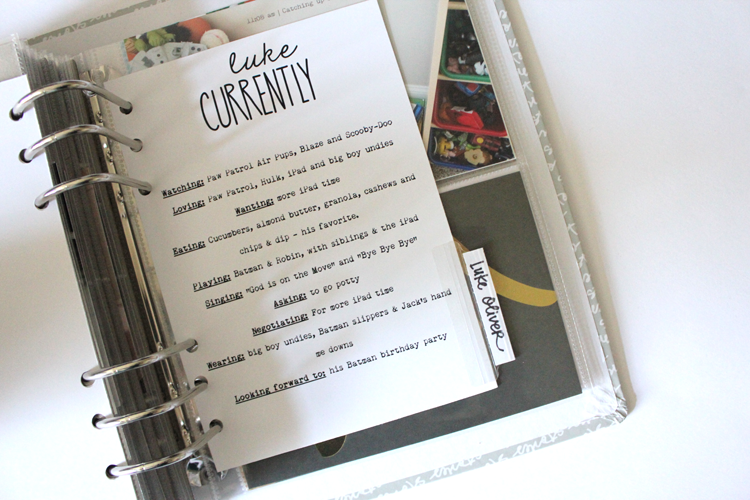 11:08 am | Catching up
luke
CURRENTLY
Watching: Paw Patrol Air Pups, Blaze and Scooby-Doo
Loving: Paw Patrol, Hulk, iPad and big boy undies
Wanting: more iPad time
Eating: Cucumbers, almond butter, granola, cashews and
chips & dip - his favorite.
Playing: Batman & Robin, with siblings & the iPad
Singing: "God is on the Move" and "Bye Bye Bye"
Asking: to go potty
Negotiating: For more iPad time
Wearing: big boy undies, Batman slippers & Jack's hand
me downs
Looking forward to: his Batman birthday party
Luke Oliver